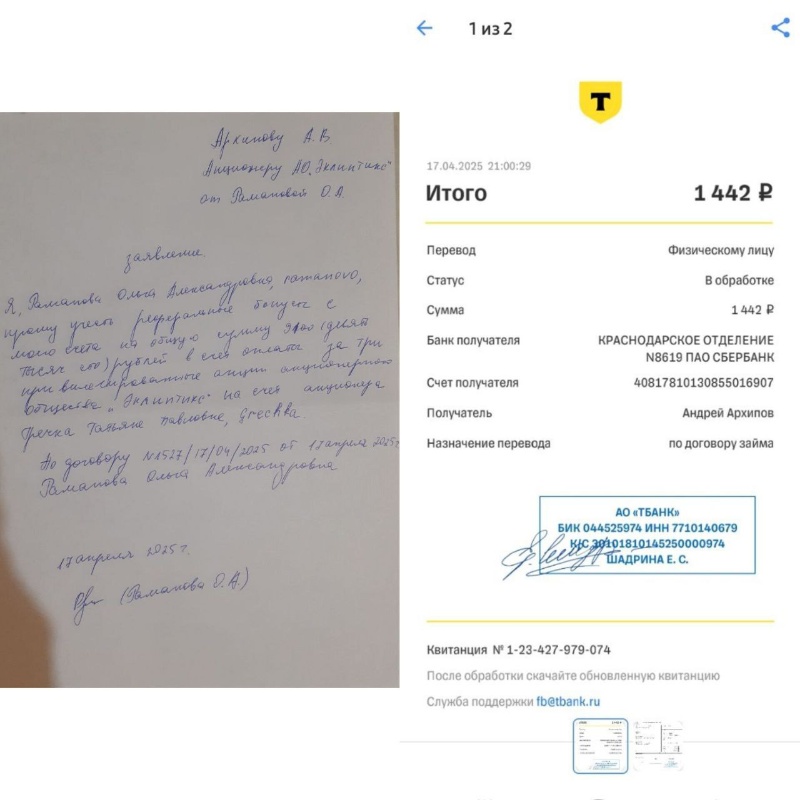 Архипову А.В.
Акционеру АО „Эклиптикс“
от Рамаповой О.А.
заявление.
Я, Рамапова Ольга Александровна, ramapovo,
прошу учесть реферальные бонусы с
моего счета на общую сумму 9100 (девять
тысяч сто) рублей в счет оплаты за три
привилегированные акции акционерного
общества „Эклиптикс“ на счет акционера
Гречка Татьяне Павловне, grechka.
По договору N1527/17/04/2025 от 17 апреля 2025г.
Рамапова Ольга Александровна
17 апреля 2025г.
(Рамапова О.А.)
1 из 2
Т
17.04.2025 21:00:29
Итого 1 442 ₽
Перевод Физическому лицу
Статус В обработке
Сумма 1 442 ₽
Банк получателя КРАСНОДАРСКОЕ ОТДЕЛЕНИЕ
N8619 ПАО СБЕРБАНК
Счет получателя 40817810130855016907
Получатель Андрей Архипов
Назначение перевода по договору займа
АО «ТБАНК»
БИК 044525974 ИНН 7710140679
К/С 30101810145250000974
ШАДРИНА Е. С.
Квитанция № 1-23-427-979-074
После обработки скачайте обновленную квитанцию
Служба поддержки fb@tbank.ru